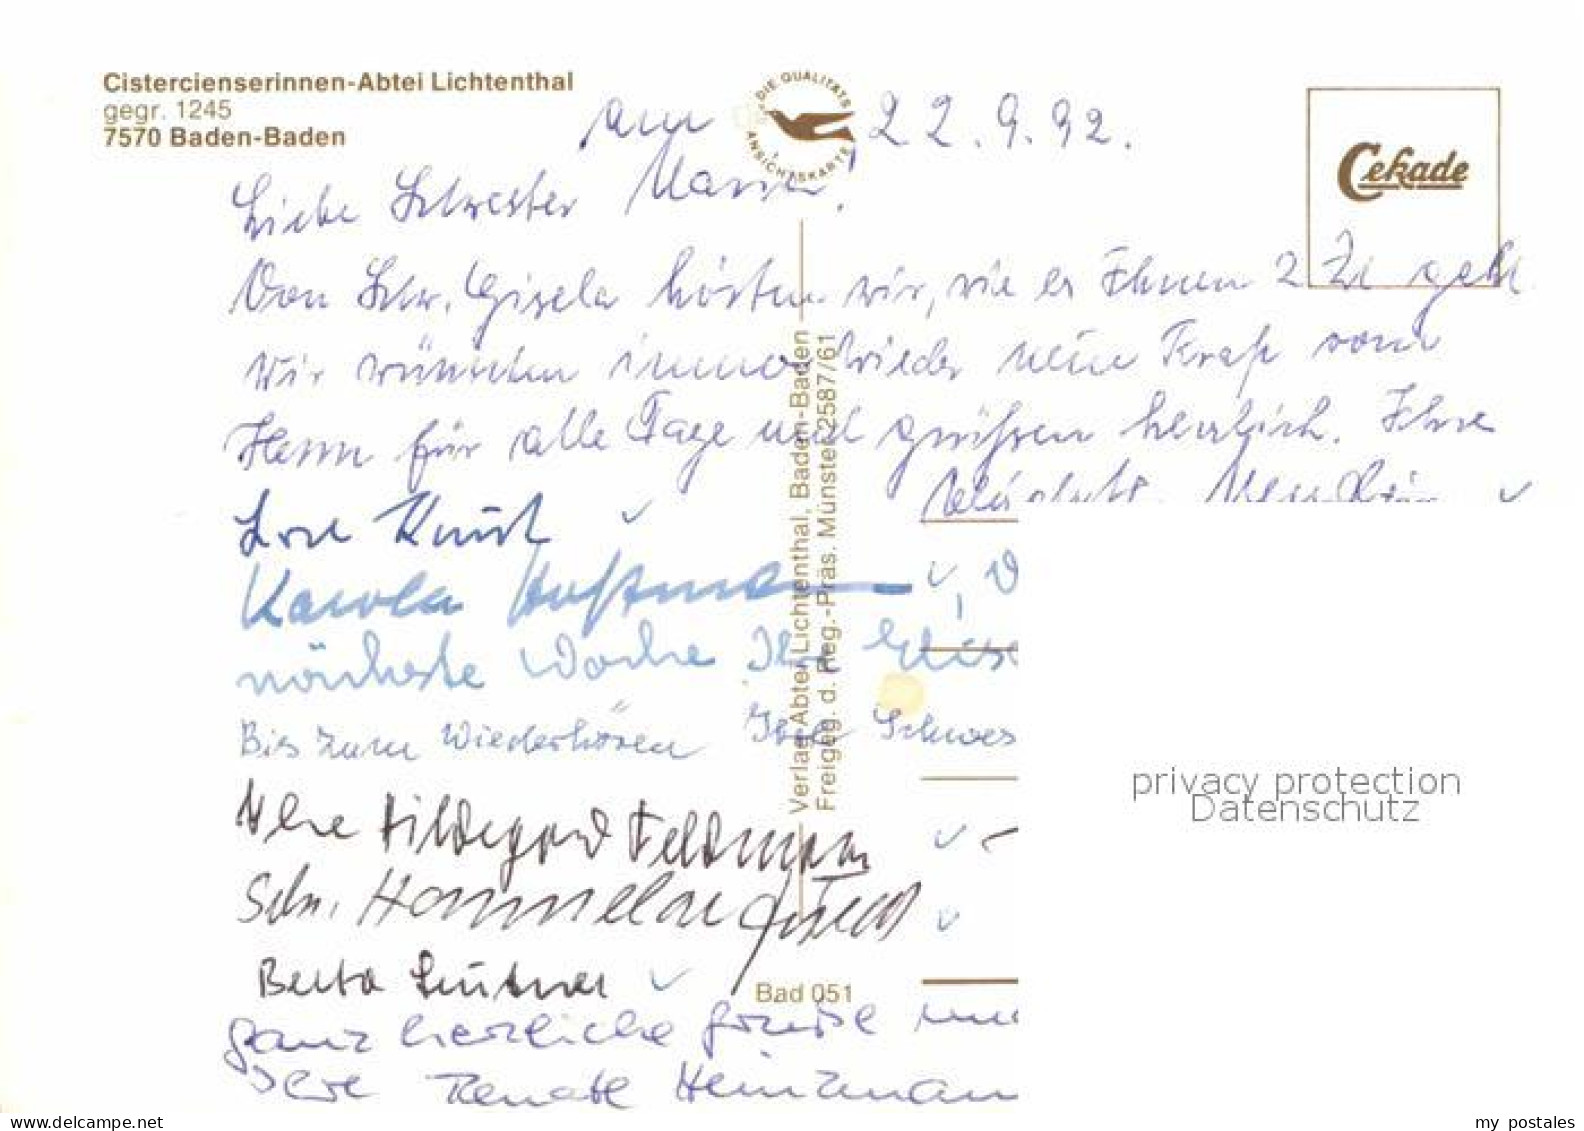 Cistercienserinnen-Abtei Lichtenthal
gegr. 1245
7570 Baden-Baden
DIE QUALITÄTS
ANSICHTSKARTE
Cekade
am 22.9.92.
Liebe Schwester
Von Schw. Gisela hörten wir, wie es Ihnen z Zt geht.
Wir wünschen immer wieder neue Kraft vom
Herrn für alle Tage und grüßen herzlich. Ihre
Karola
nächste Woche Ihre
Bis zum Wiederhören Ihre Schwes
Ihre Hildegard Feldmann
Schw.
Berta
ganz herzliche Grüße
Ihre Renate Heinzmann
Verlag Abtei Lichtenthal, Baden-Baden
Freigeg. d. Reg.-Präs. Münster 2587/61
Bad 051
privacy protection
Datenschutz
delcampe.net
my postales